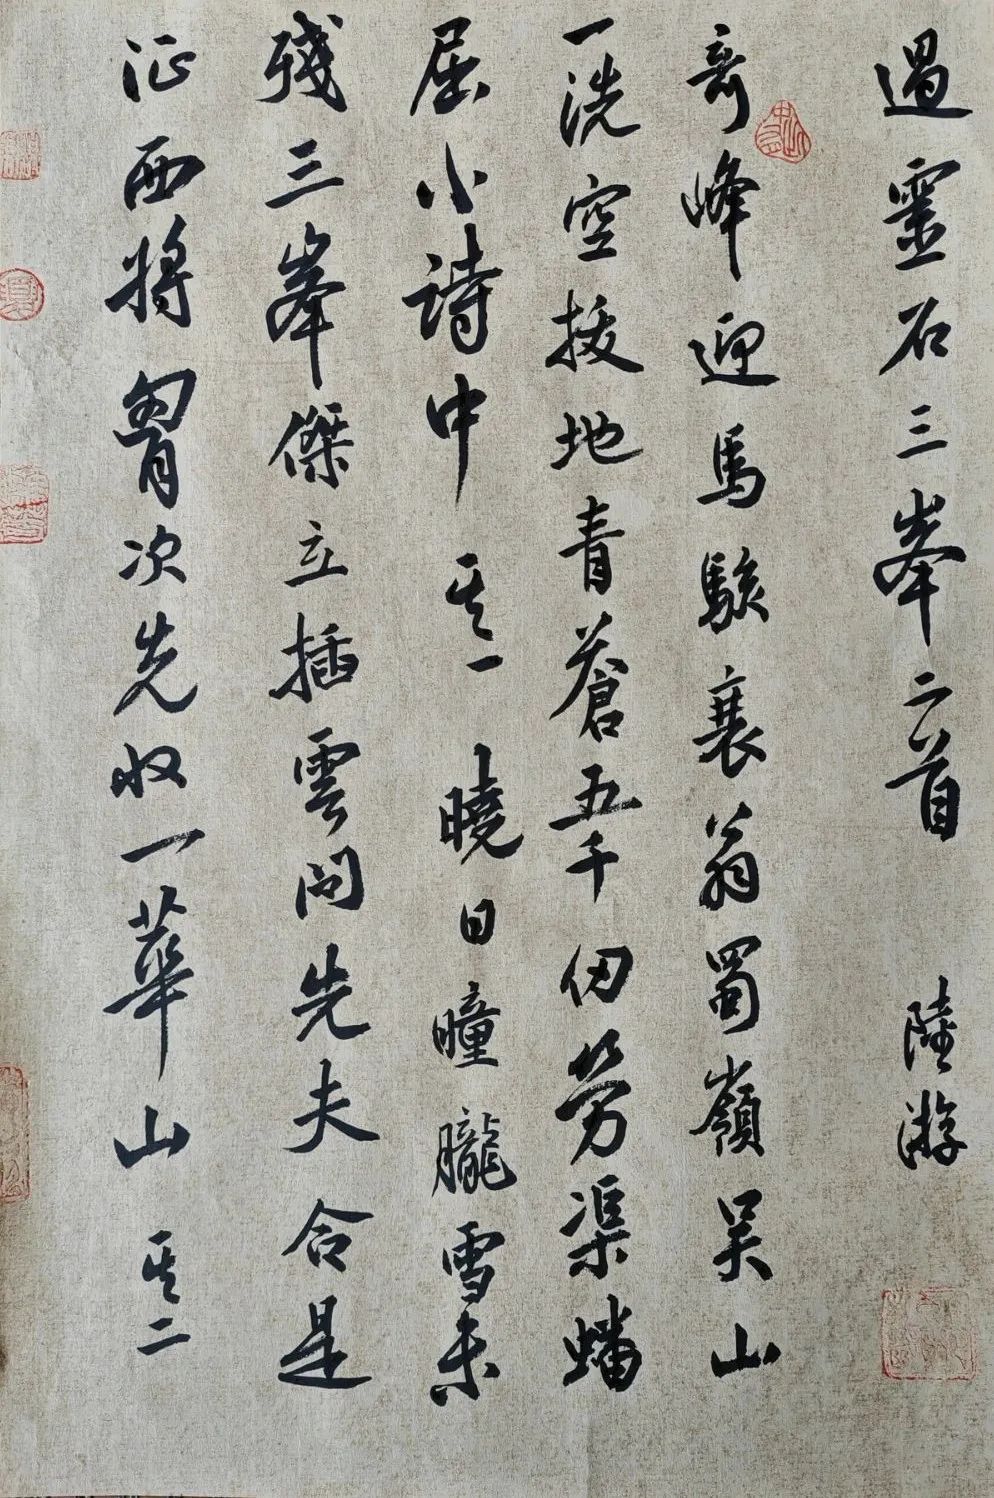 過靈石三峯二首 陸游
奇峰迎馬駭衰翁蜀嶺吴山
一洗空拔地青蒼五千仞劳渠蟠
屈小詩中 其一 曉日曈朧雪未
殘三峯傑立插雲間先夫合是
征西將胷次先收一華山 其二